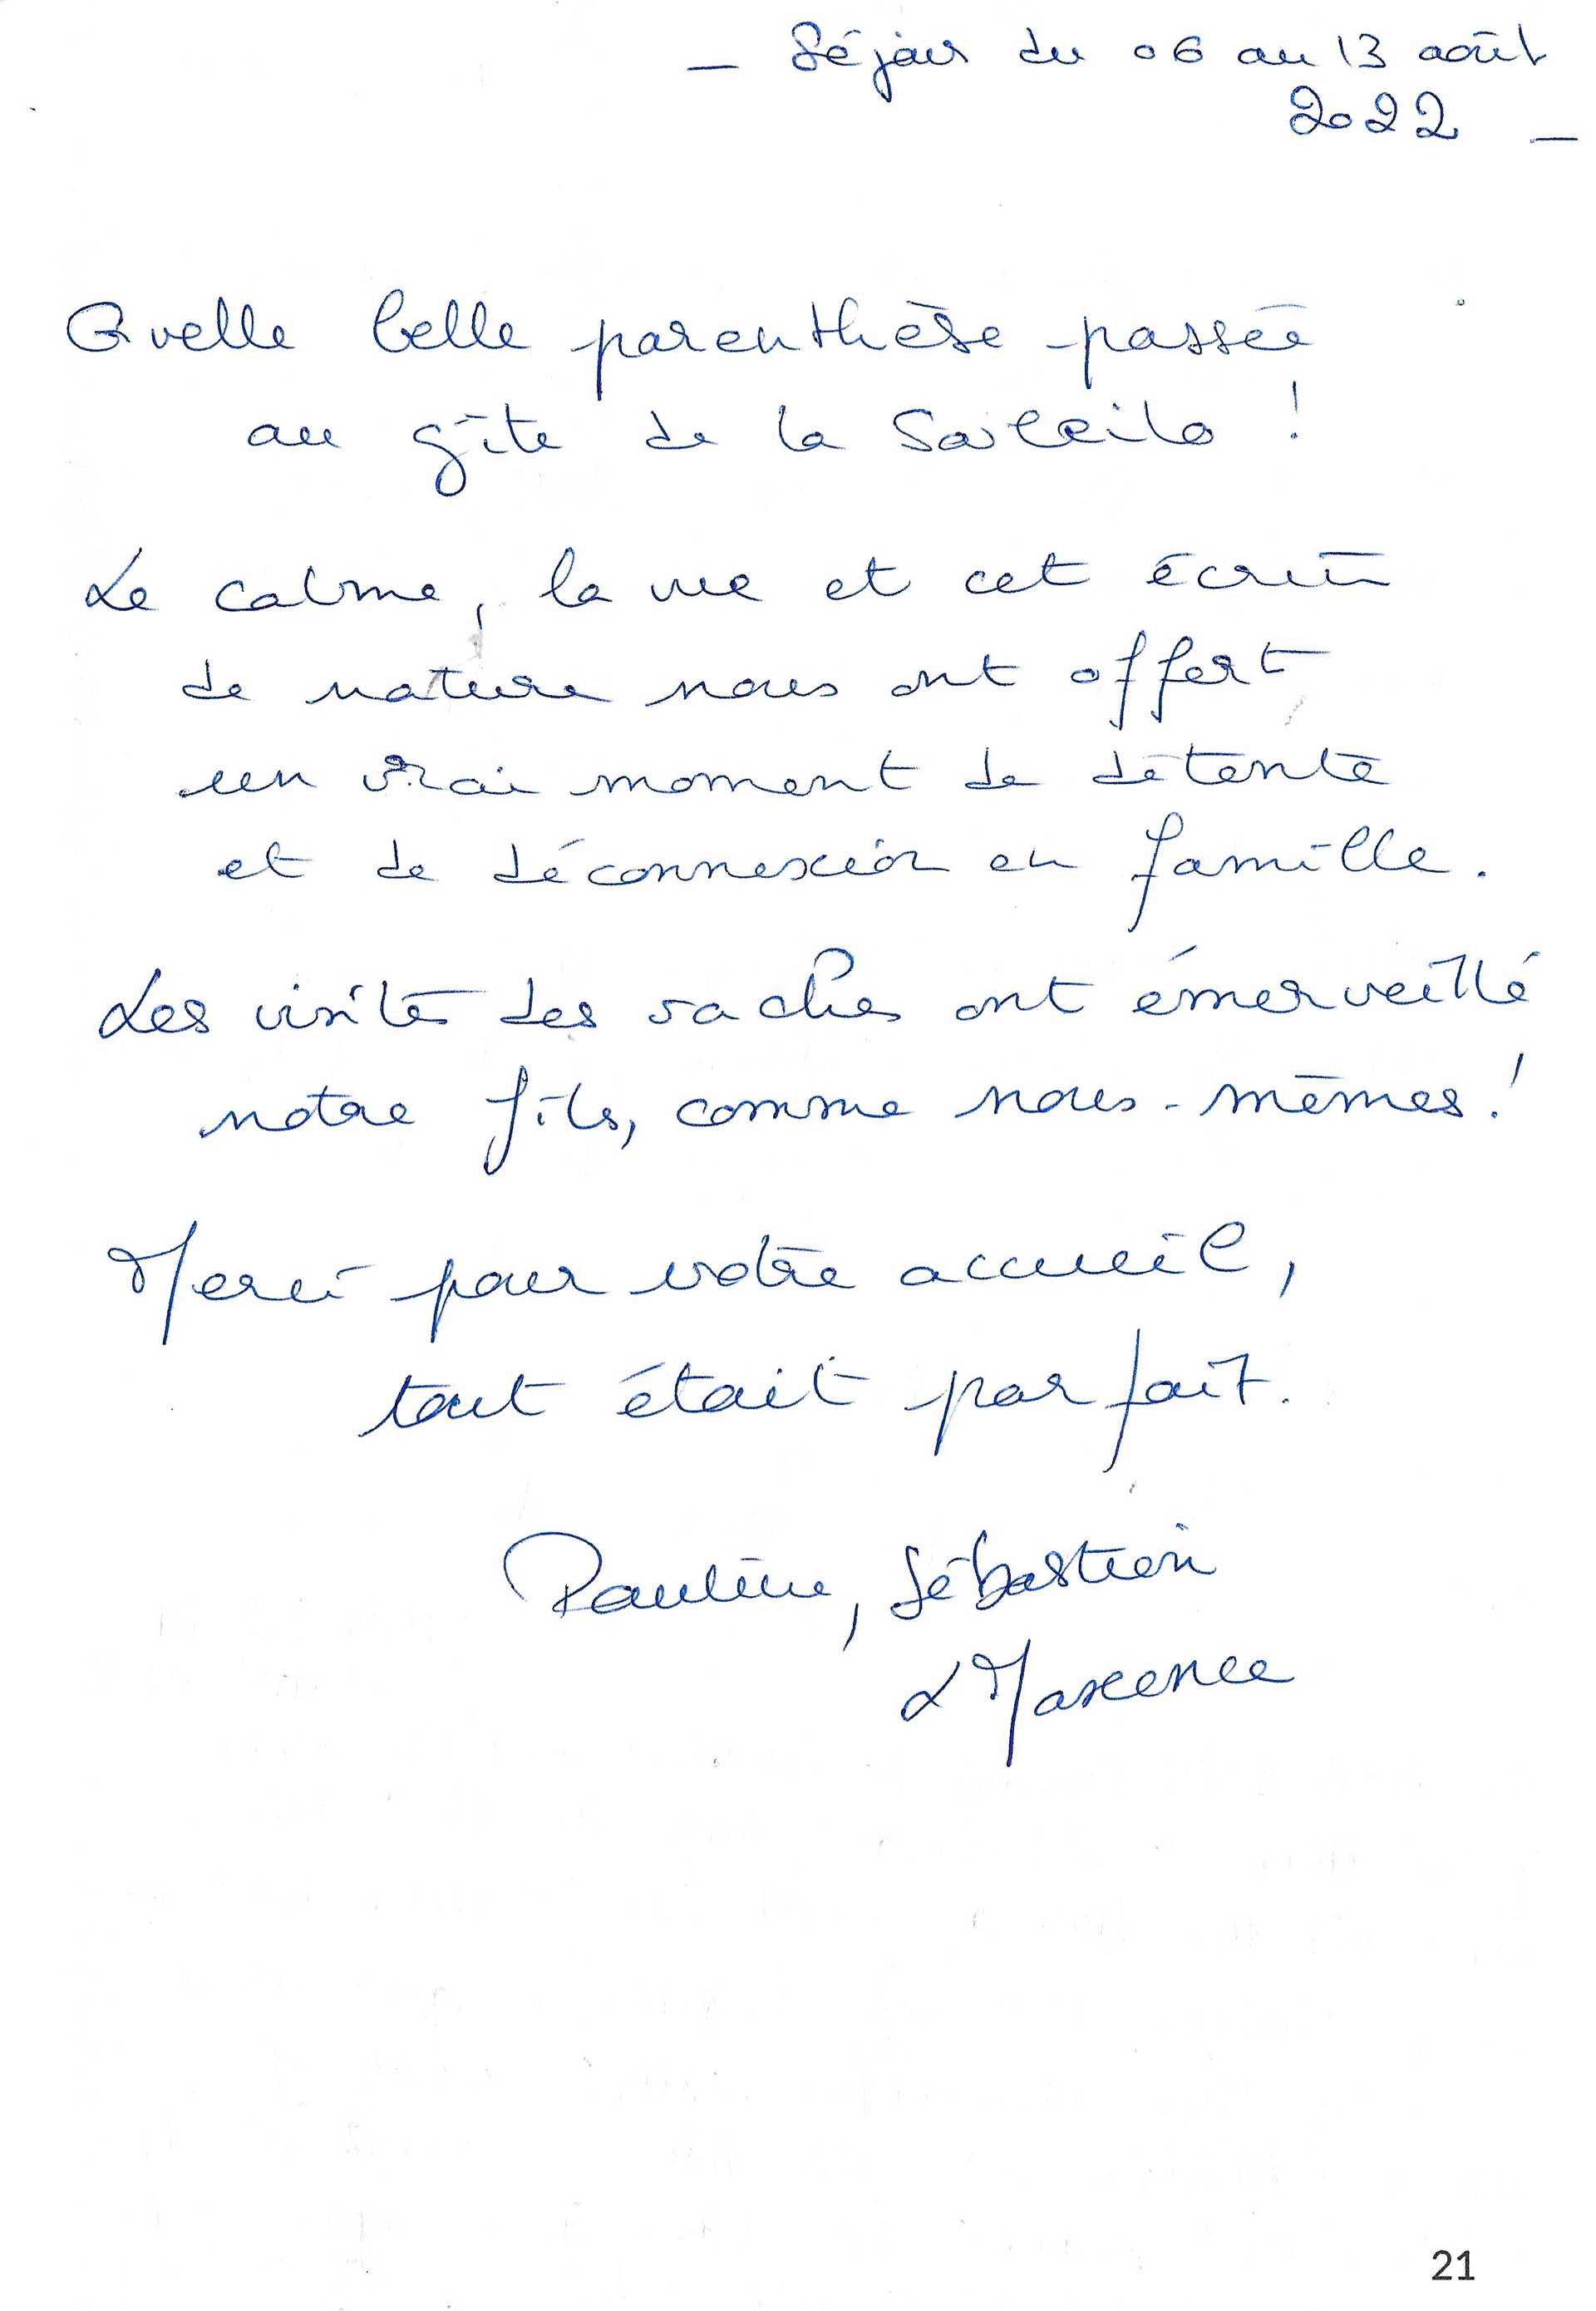 — Séjour du 06 au 13 août
2022 —
Quelle belle parenthèse passée
au gîte de la Soleilo !
Le calme, la vue et cet écrin
de nature nous ont offert
un vrai moment de détente
et de déconnexion en famille.
Les visites des vaches ont émerveillé
notre fils, comme nous-mêmes !
Merci pour votre accueil,
tout était parfait.
Pauline, Sébastien
& Maxence
21